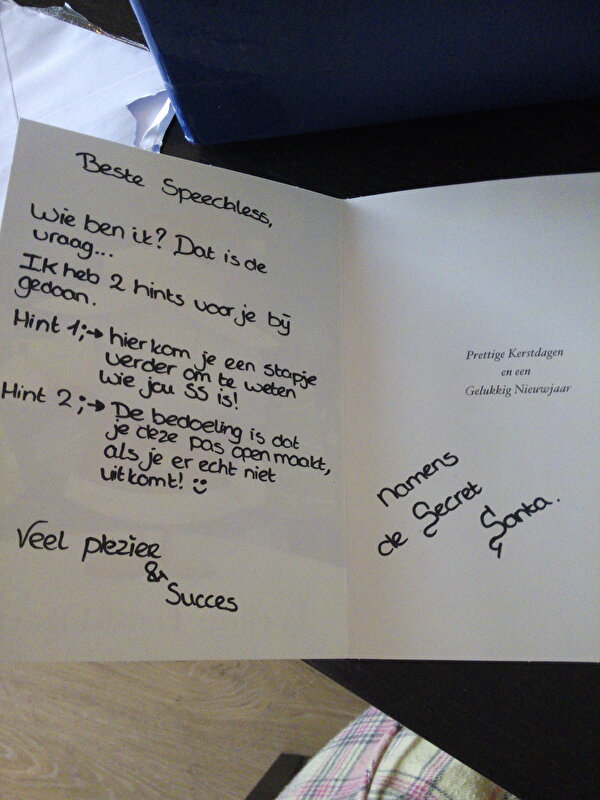 Beste Speechless,
Wie ben ik? Dat is de
vraag...
Ik heb 2 hints voor je bij
gedaan.
Hint 1;→ hier kom je een stapje
verder om te weten
wie jou SS is!
Hint 2;→ De bedoeling is dat
je deze pas open maakt,
als je er echt niet
uitkomt! ☺
Veel plezier
&
Succes
Prettige Kerstdagen
en een
Gelukkig Nieuwjaar
namens
de Secret
Santa.